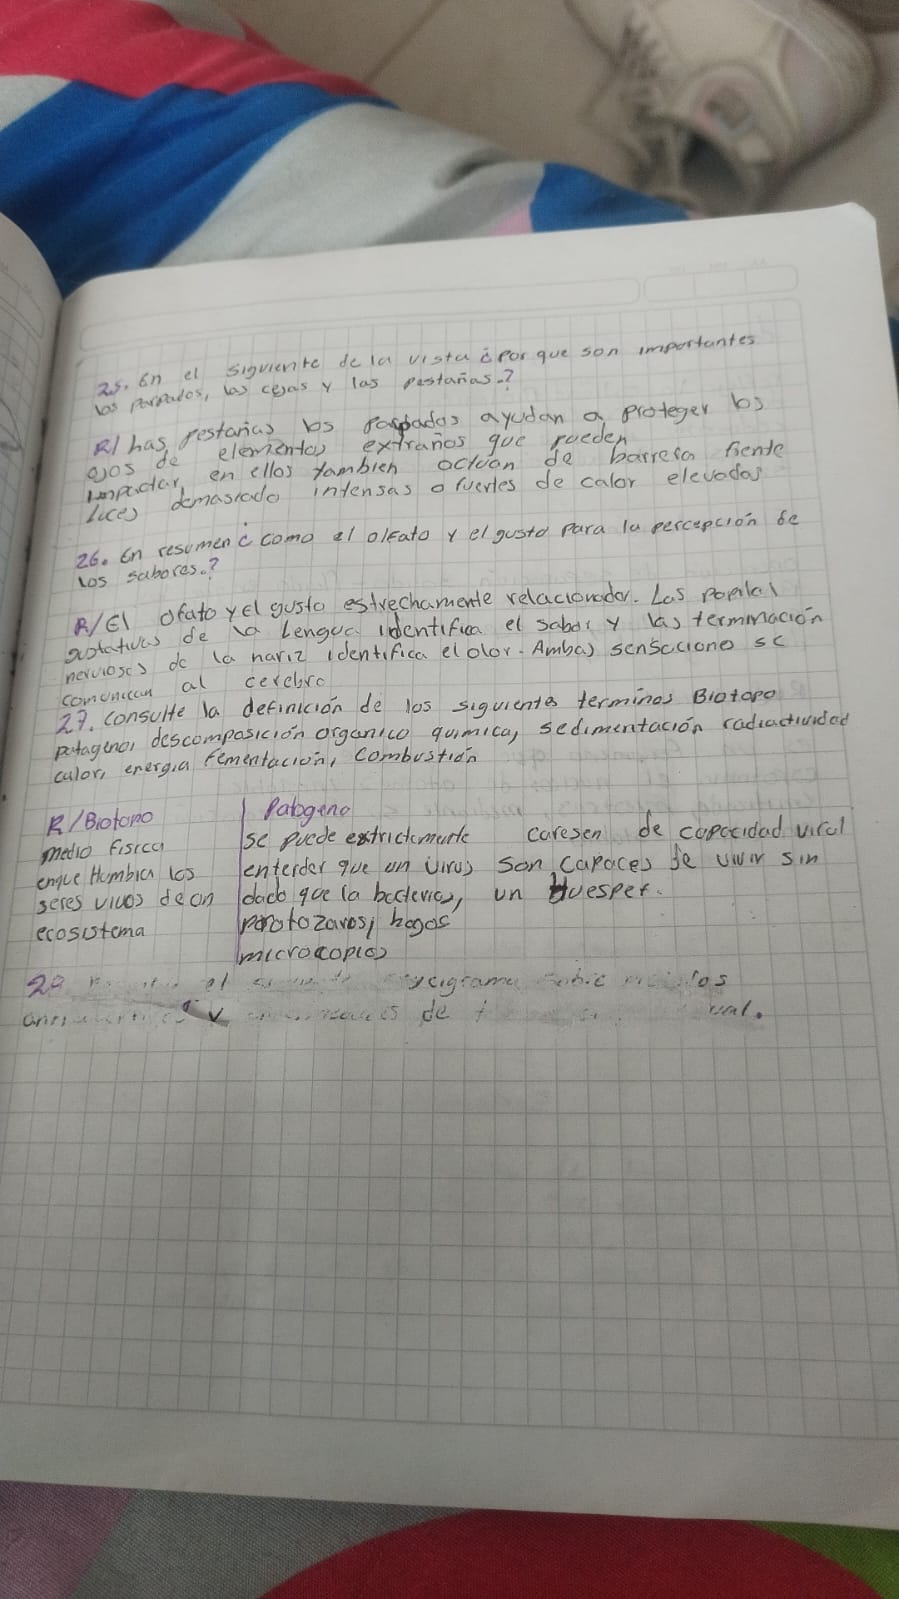 25. En el siguiente de la vista ¿Por que son importantes
los parpados, las cejas y las pestañas.?
R/ has pestañas los parpados ayudan a proteger los
ojos de elementos extraños que pueden
impactar, en ellos tambien actúan de barrera frente
luces demasiado intensas o fuertes de calor elevadas
26. En resumen ¿ como el olfato y el gusto para la percepción de
los sabores.?
R/El ofato y el gusto estrechamente relacionador. Las papilas
gustativas de la Lengua identifica el sabor y las terminación
nerviosas de la nariz identifica el olor. Ambas sensaciono se
comunican al cerebro
27. consulte la definición de los siguientes terminos Biotopo
patageno, descomposición organico quimica, sedimentación radiactividad
calor, energia fementación, combustión
R/Biotopo
Patogeno
medio fisico
enque Humbica los
seres vivos de on
ecosistema
se puede estrictamente caresen de capacidad viral
enterder que un virus son capaces de vivir sin
dado que la bacterias, un Huesper.
protozaros, hogos
microcopios
28 el
de